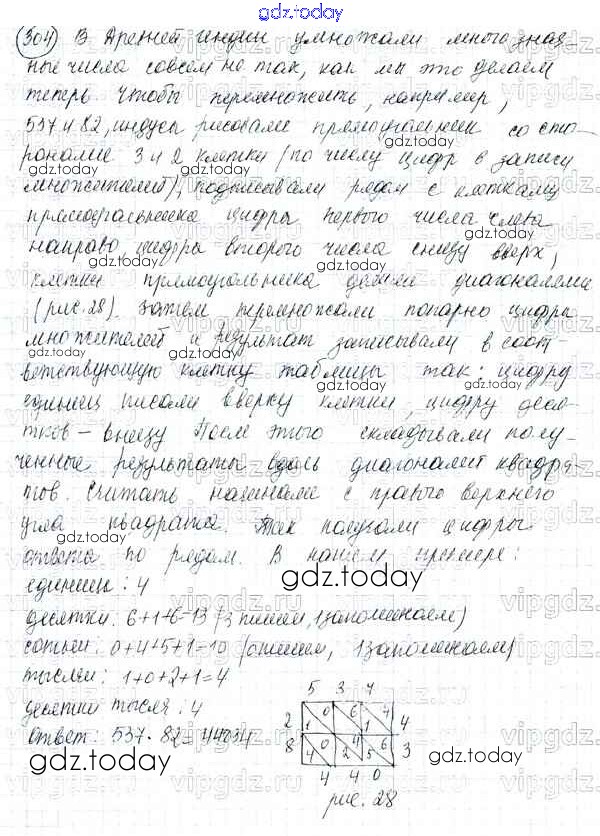 gdz.today
304) В Древней Индии умножали многознач
ные числа совсем не так, как мы это делаем
теперь. Чтобы перемножить, например,
537 и 82, индусы рисовали прямоугольник со сто-
ронами 3 и 2 клетки (по числу цифр в записи
множителей), подписывали рядом с клетками
прямоугольника цифры первого числа слева
направо, цифры второго числа снизу вверх,
клетки прямоугольника делили диагоналями
(рис. 28). Затем перемножали попарно цифры
множителей и результат записывали в соот-
ветствующую клетку таблицы так: цифру
единиц писали вверху клетки, цифру деся-
тков – внизу. После этого складывали полу-
ченные результаты вдоль диагоналей квадра-
тов. Считать начинали с правого верхнего
угла квадрата. Так получали цифры
ответа по рядам. В нашем примере:
единиц: 4
десятки: 6+1+6=13 (3 пишем, 1 запоминаем)
сотни: 0+4+5+1=10 (0 пишем, 1 запоминаем)
тысячи: 1+0+2+1=4
десятки тысяч: 4
ответ: 537·82=44034
5 3 7
2 1 0 6 1 4 4
8 4 0 2 4 5 6 3
4 4 0
рис. 28
gdz.today
vipgdz.ru